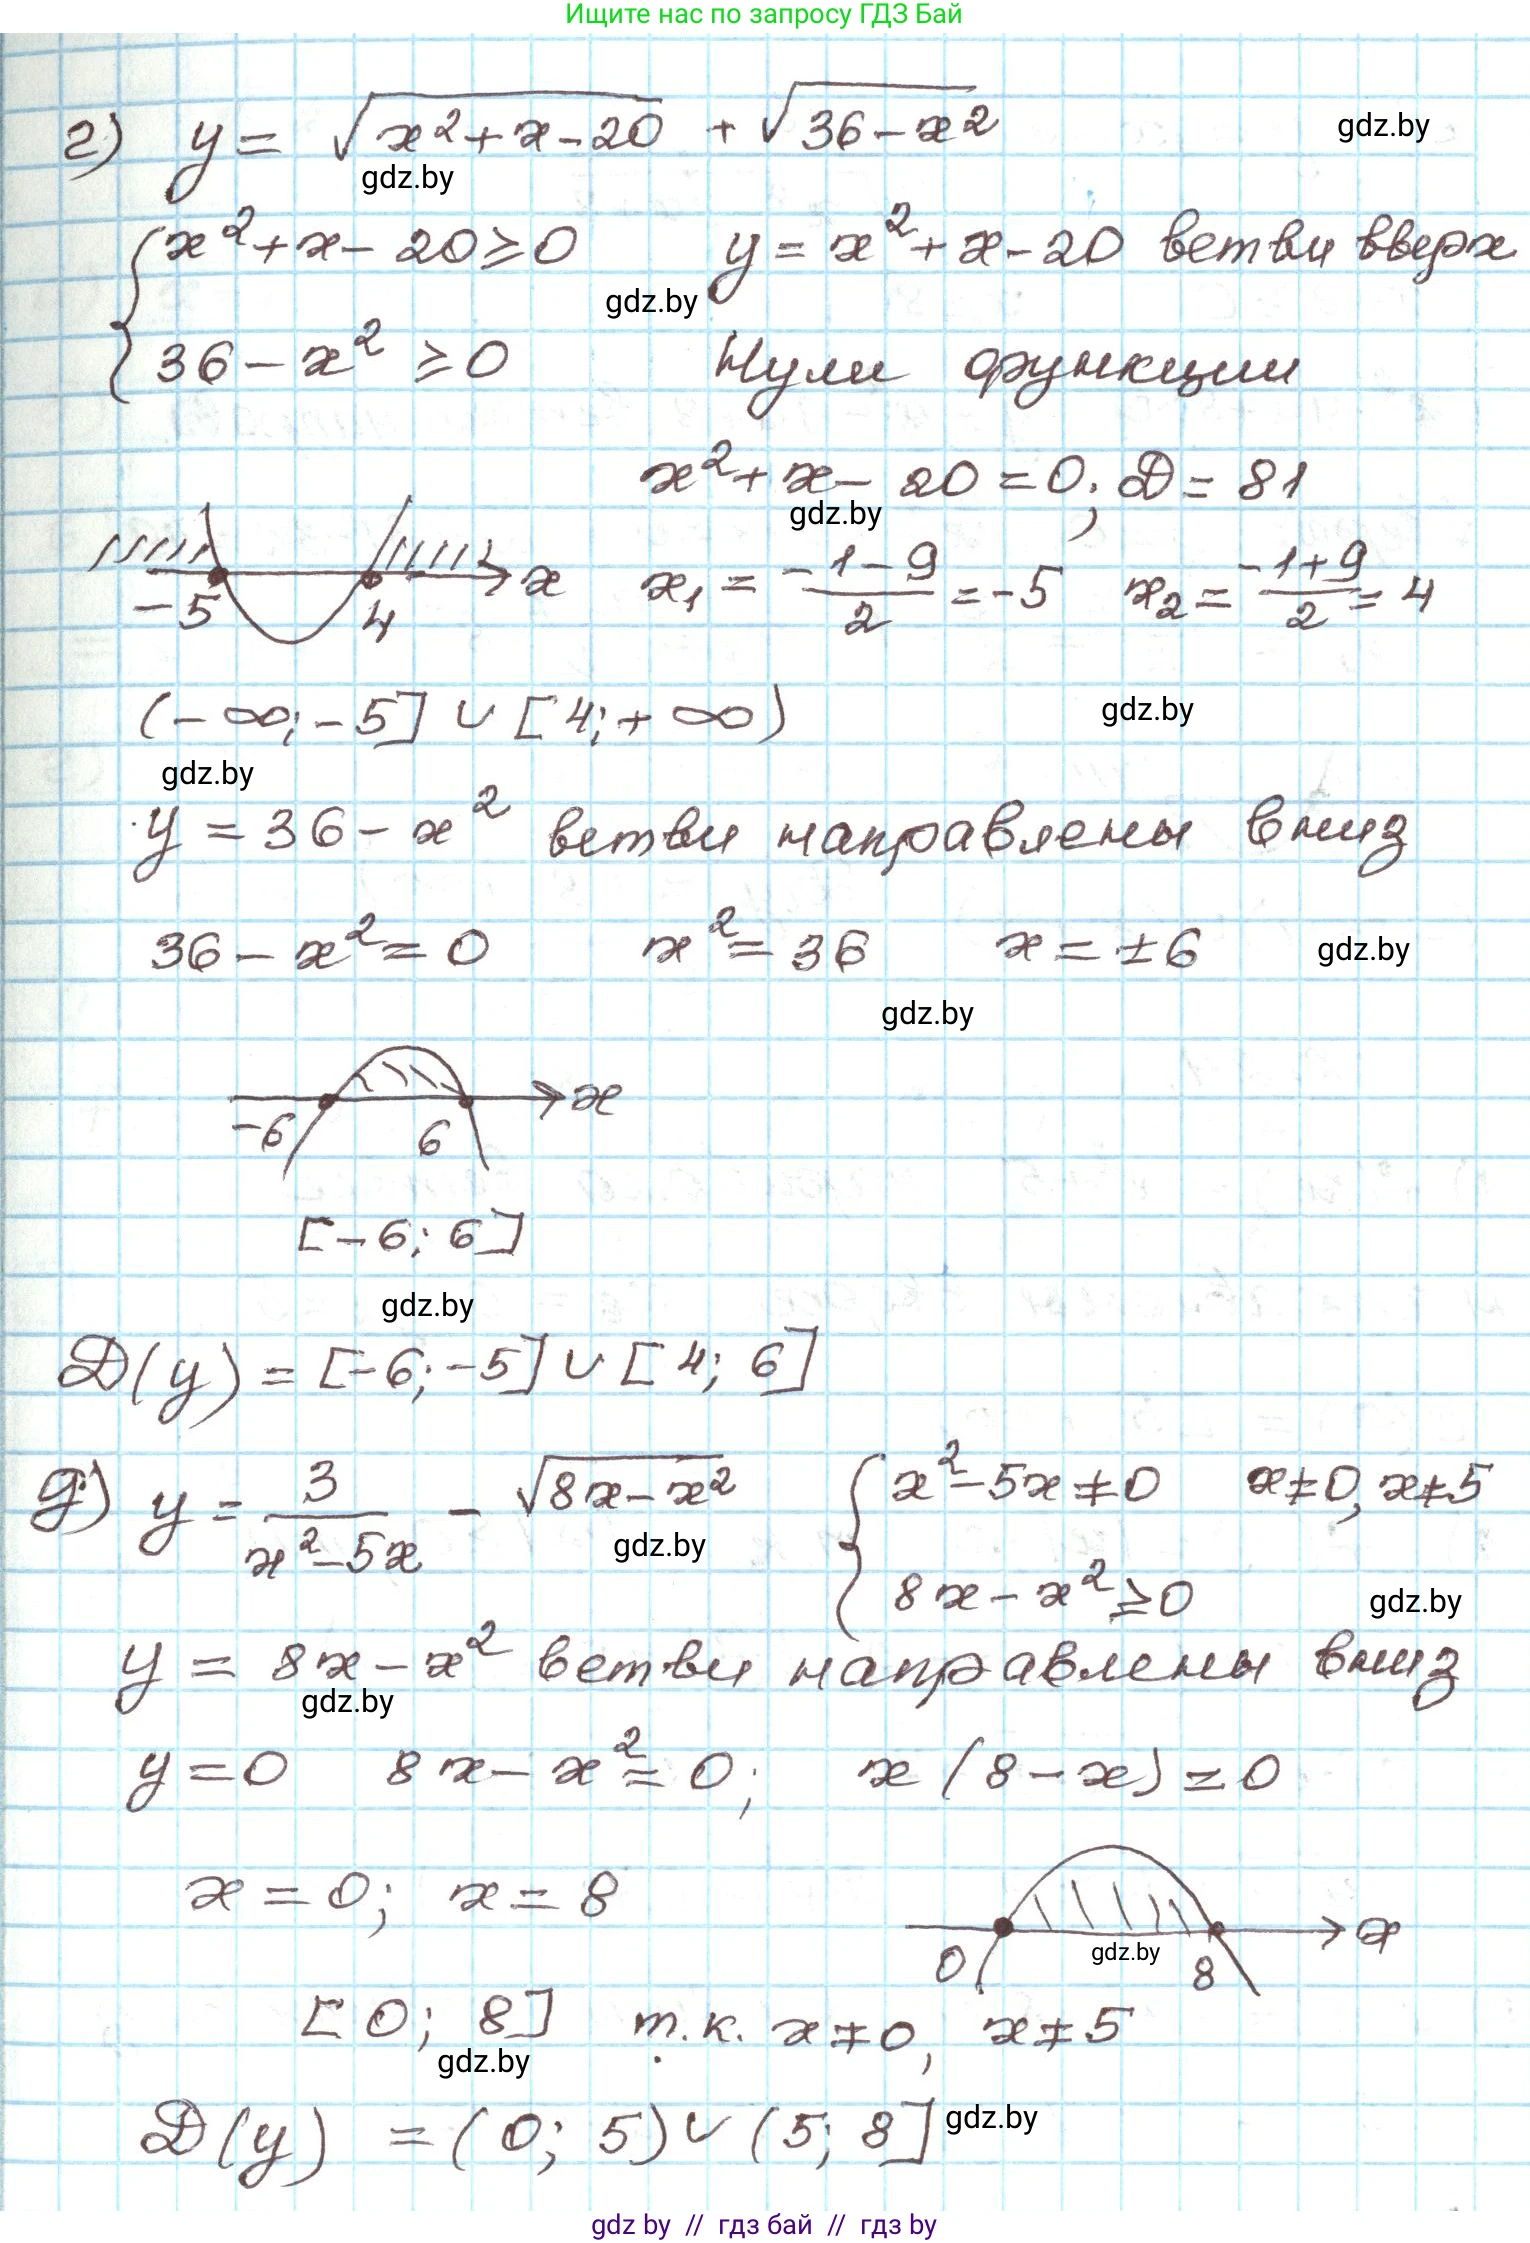 Ищите нас по запросу ГДЗ Бай
г) y = √(x² + x - 20) + √(36 - x²)
gdz.by
gdz.by
{ x² + x - 20 ≥ 0 y = x² + x - 20 ветви вверх
gdz.by
36 - x² ≥ 0 Нули функции
x² + x - 20 = 0; D = 81
gdz.by
-5 4 x x₁ = (-1-9)/2 = -5 x₂ = (-1+9)/2 = 4
(-∞; -5] ∪ [4; +∞)
gdz.by
gdz.by
y = 36 - x² ветви направлены вниз
36 - x² = 0 x² = 36 x = ±6
gdz.by
gdz.by
-6 6 x
[-6; 6]
gdz.by
D(y) = [-6; -5] ∪ [4; 6]
д) y = 3/(x² - 5x) - √(8x - x²) { x² - 5x ≠ 0 x ≠ 0, x ≠ 5
gdz.by
8x - x² ≥ 0
gdz.by
y = 8x - x² ветви направлены вниз
gdz.by
y = 0 8x - x² = 0; x(8 - x) = 0
x = 0; x = 8
0 8 x
gdz.by
[0; 8] т.к. x ≠ 0, x ≠ 5
gdz.by
D(y) = (0; 5) ∪ (5; 8]
gdz.by
gdz by // гдз бай // гдз by